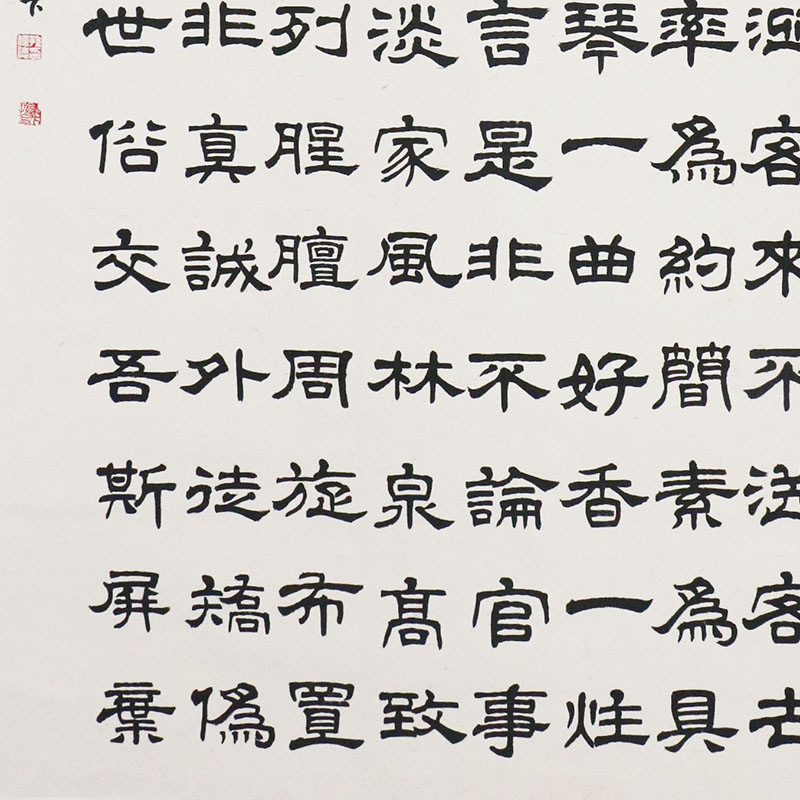 客來不送客去
率為約簡素為具
琴一曲好香一炷
言是非不論官事
淡家風林泉高致
列腥膻周旋布置
非真誠外徒矯偽
世俗交吾斯屏棄